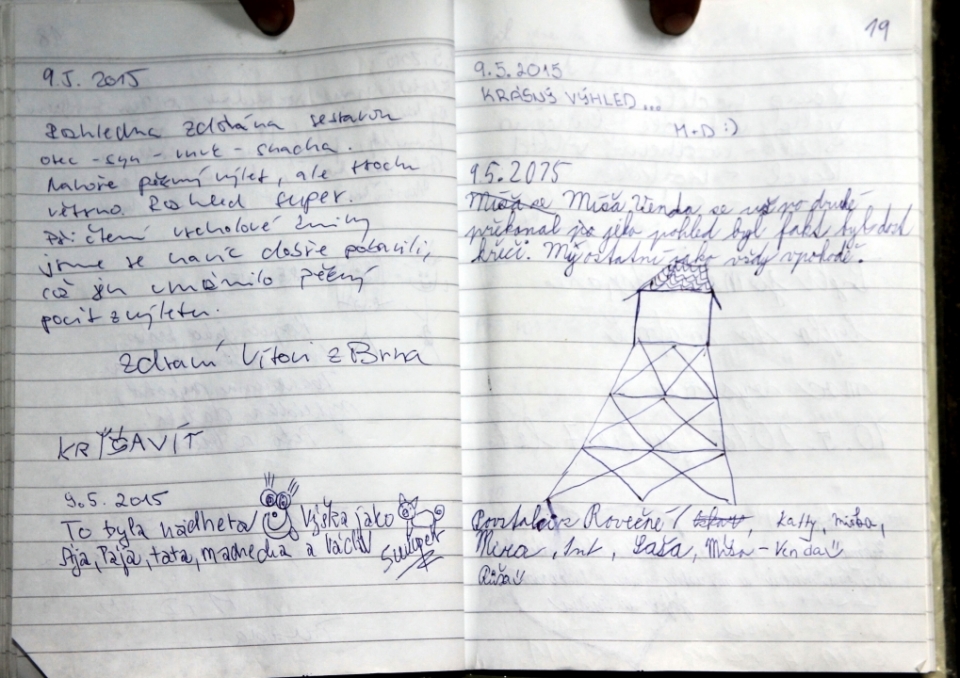 9.5. 2015
Rozhledna zdolána sestavou
otec - syn - vnuk - snacha.
Nahoře pěkný výlet, ale trochu
větrno. Rozhled super.
Při čtení vrcholové
jsme se navíc dobře pobavili,
což jen pěkný
pocit z výletu.
Zdraví Vítovi z Brna
KRIŠŠAVÍT
9.5. 2015
To byla nádhera! Výška jako
Pája, táta, a
super
19
9.5.2015
KRÁSNÝ VÝHLED...
M+D :)
9.5.2015
Míša se Míša Venda se už po druhé
překonal jako pohled byl fakt byl dost
křečí. My ostatní jako vždy vpohodě.
Rovečné / Katty, Míša,
Mirea, Saša, Míša - Venda
Růža